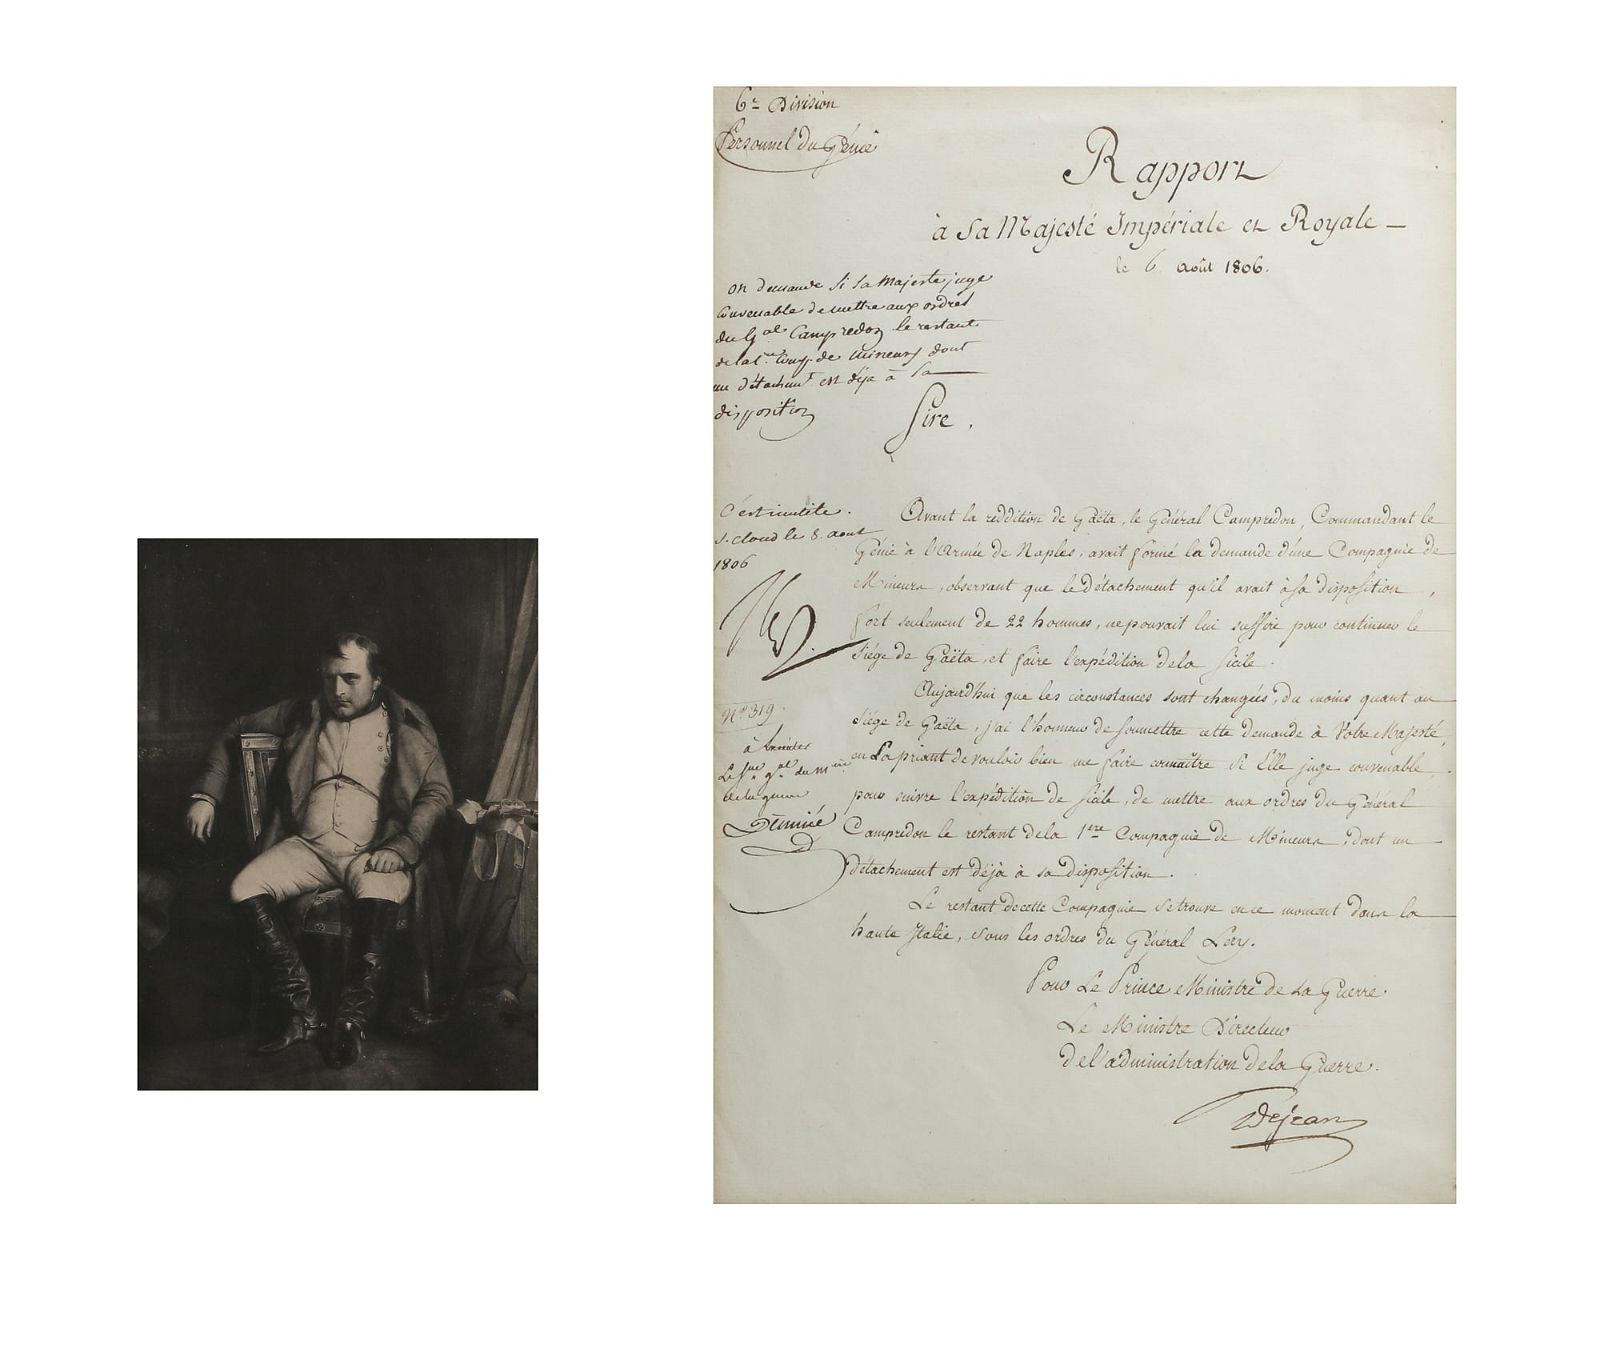 6e Division
Personnel du Génie
Rapport
à Sa Majesté Impériale et Royale —
le 6 août 1806.
on demande si sa majesté juge
convenable de mettre aux ordres
du Gal Campredon le restant
de la 1re Comp de mineurs dont
un détachemt est déja à sa
disposition
Sire.
C'est inutile.
S. Cloud le 8. aout
1806
Avant la reddition de Gaëta, le Général Campredon, Commandant le
Génie à l'Armée de Naples, avait formé la demande d'une Compagnie de
Mineurs, observant que le détachement qu'il avait à sa disposition,
fort seulement de 22 hommes, ne pouvait lui suffire pour continuer le
Siége de Gaëta, et faire l'expédition de la Sicile.
Aujourd'hui que les circonstances sont changées, du moins quant au
Siége de Gaëta, j'ai l'honneur de soumettre cette demande à Votre Majesté,
en La priant de vouloir bien me faire connaître si Elle juge convenable,
pour suivre l'expédition de Sicile, de mettre aux ordres du Général
Campredon le restant de la 1ere Compagnie de Mineurs, dont un
détachement est déjà à sa disposition.
Le restant de cette Compagnie se trouve en ce moment dans la
haute Italie, sous les ordres du Général Lery.
No 319.
le gal du
de la guerre
Denniée
Pour Le Prince Ministre de La Guerre.
Le Ministre Directeur
de l'administration de la Guerre.
Dejean